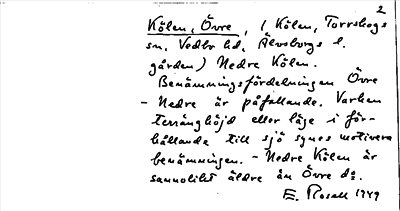 2
Kölen, Övre, (Kölen, Torrskogs
sn, Vedbo hd, Älvsborgs l.
gården) Nedre Kölen.
Benämningsfördelningen Övre
- Nedre är påfallande. Varken
terränghöjd eller läge i för-
hållande till sjö synes motivera
benämningen. - Nedre Kölen är
sannolikt äldre än Övre d:o
E. Rosell 1949